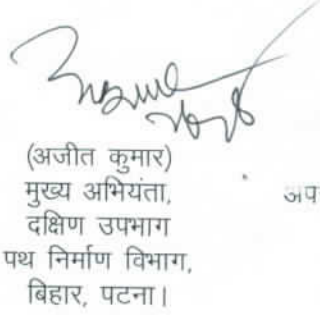 (अजीत कुमार)
मुख्य अभियंता,
दक्षिण उपभाग
पथ निर्माण विभाग,
बिहार, पटना।
अप